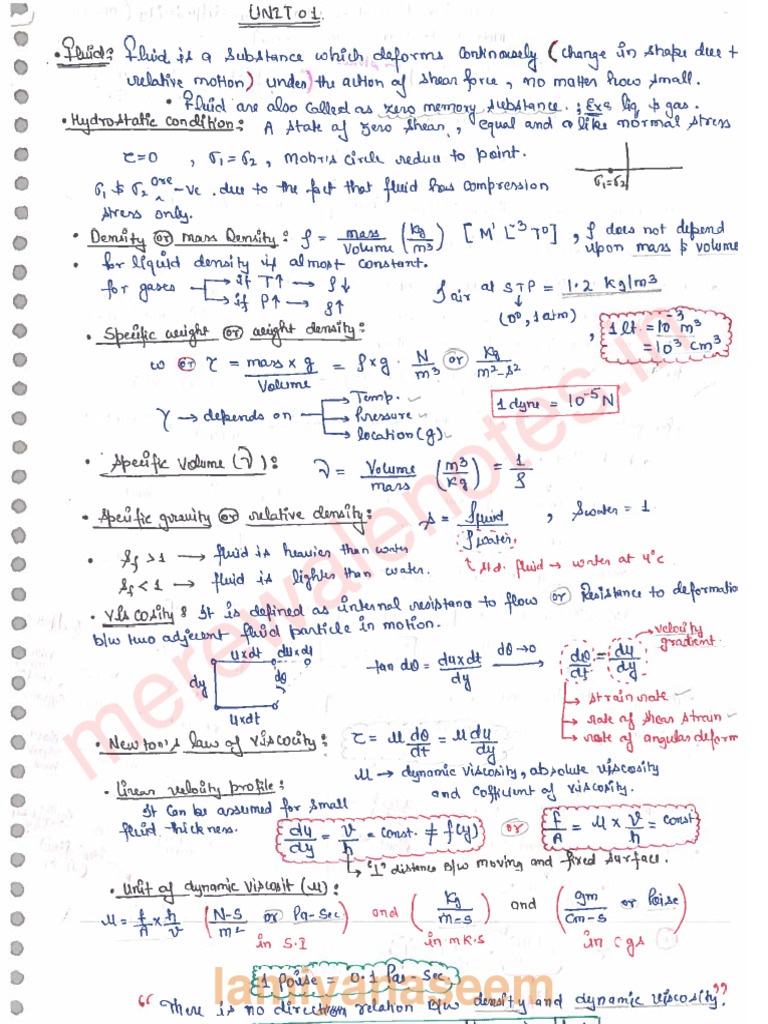 UNIT 01.
• Fluid: Fluid is a substance which deforms continously (change in shape due t
relative motion) under the action of shear force, no matter how small.
• Fluid are also called as zero memory substance. ; Ex: liq. & gas.
• Hydrostatic condition: A state of zero shear, equal and a like normal stress
τ=0 , σ1 = σ2 , Mohr's circle reduce to point.
σ1=σ2
σ1 & σ2 are -ve due to the fact that fluid has compression
stress only.
• Density or mass Density: ρ = mass/Volume (kg/m3) [M1 L-3 T0] , ρ does not depend
upon mass & volume
• for liquid density is almost constant.
for gases → if T↑ → ρ↓
→ if P↑ → ρ↑
ρair at STP = 1.2 kg/m3
↓
(0°, 1atm)
, 1 lt. = 10-3 m3
= 103 cm3
• Specific weight or weight density:
w or γ = mass x g/Volume = ρ x g . N/m3 or kg/m2-s2
γ → depends on → Temp.
→ Pressure
→ location (g)
1 dyne = 10-5 N
• Specific Volume (ν): ν = Volume/mass (m3/kg) = 1/ρ
• Specific gravity or relative density: s = ρfluid/ρwater , Swater = 1
std. fluid → water at 4°c
• Sf > 1 → fluid is heavier than water
Sf < 1 → fluid is lighter than water.
• Viscosity: It is defined as internal resistance to flow or Resistance to deformatio
b/w two adjecent fluid particle in motion.
uxdt duxdy
dy dθ
uxdt
tan dθ = duxdt/dy dθ→0 → dθ/dt = du/dy → velocity
gradient
→ strain rate
→ rate of shear strain
→ rate of angular deform
• Newton's law of Viscocity: τ = μ dθ/dt = μ du/dy
μ → dynamic viscosity, absolute viscosity
and cofficient of viscosity.
• Linear velocity profile:
It can be assumed for small
fluid thickness.
du/dy = v/h = const. ≠ f(y) or F/A = μ x v/h = const
→ "⊥" distance b/w moving and fixed surface.
• Unit of dynamic viscosit (μ):
μ = F/A x h/v (N-S/m2 or Pa-Sec) and (kg/m-s) and (gm/cm-s or Poise)
in S.I in M.K.S in C g s
1 poise = 0.1 Pa-Sec
" There is no direct relation b/w density and dynamic viscosity."
merewalenotes.in
lamiyanaseem